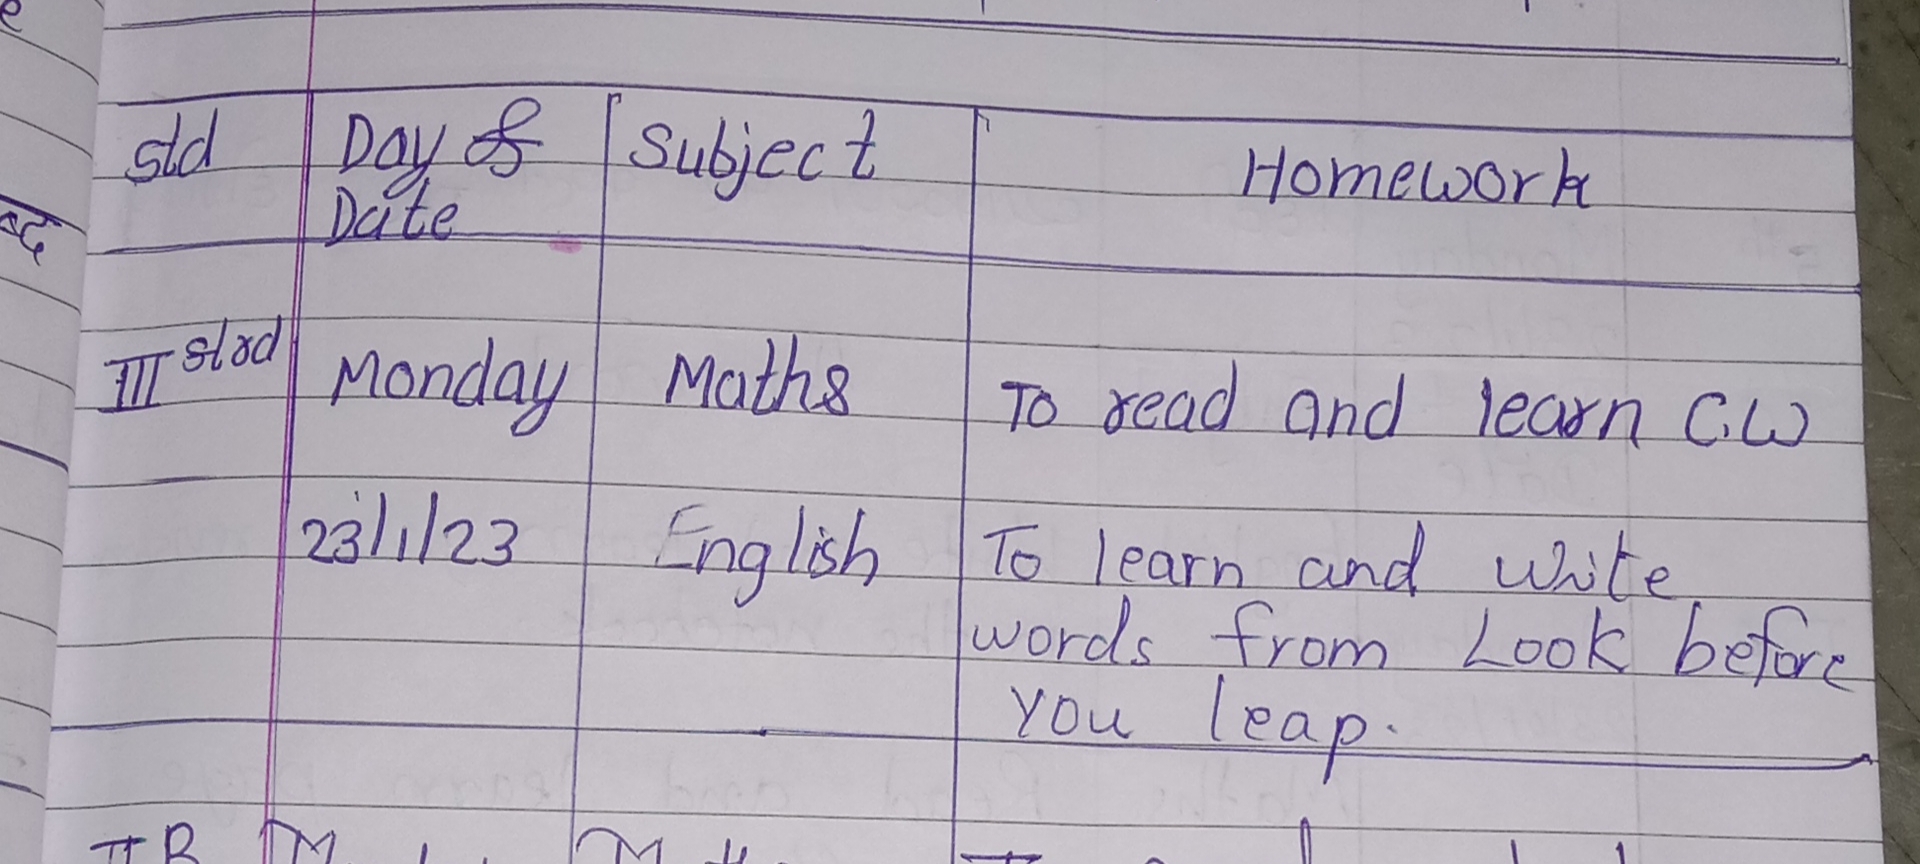 std Day & Subject Homework
Date
III strd Monday Maths To read and learn C.W
23/1/23 English To learn and write
words from Look before
you leap.
II B